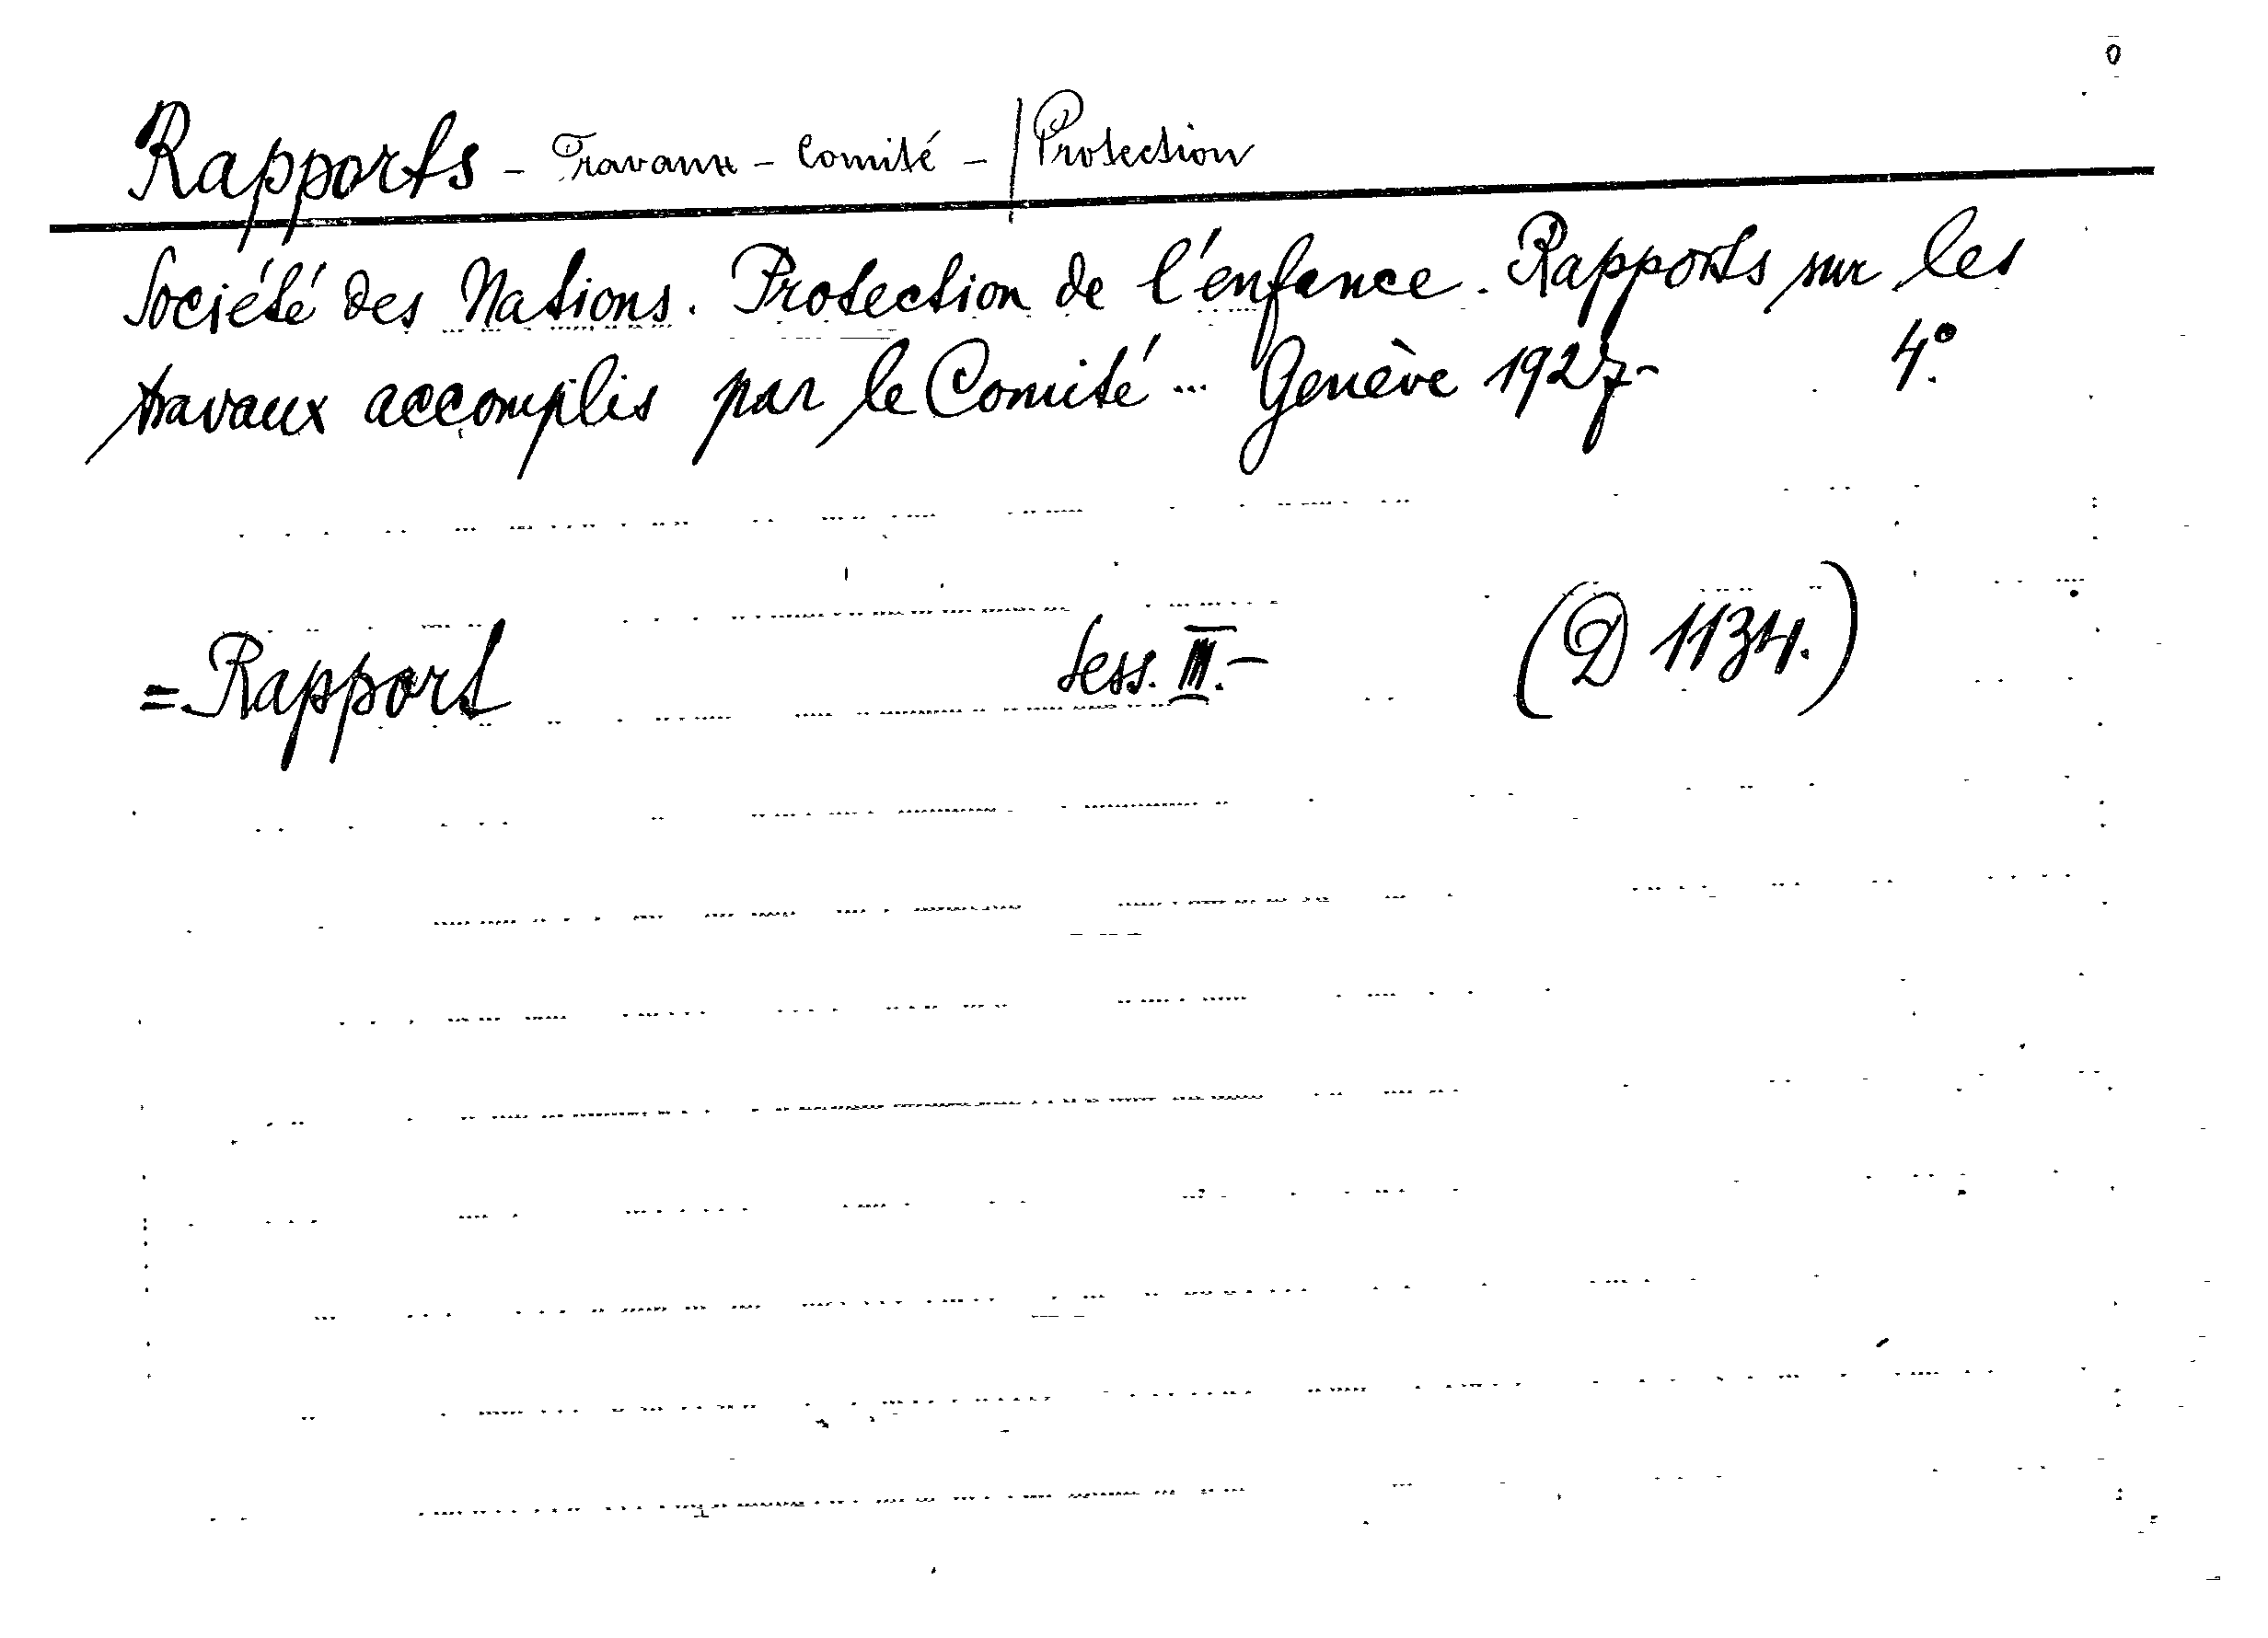 Rapports - Travaux - Comité - / Protection
Société des Nations. Protection de l'enfance. Rapports sur les
travaux accomplis par le Comité... Genève 1927- 4°.
= Rapport Sess. III.- (D 1134.)